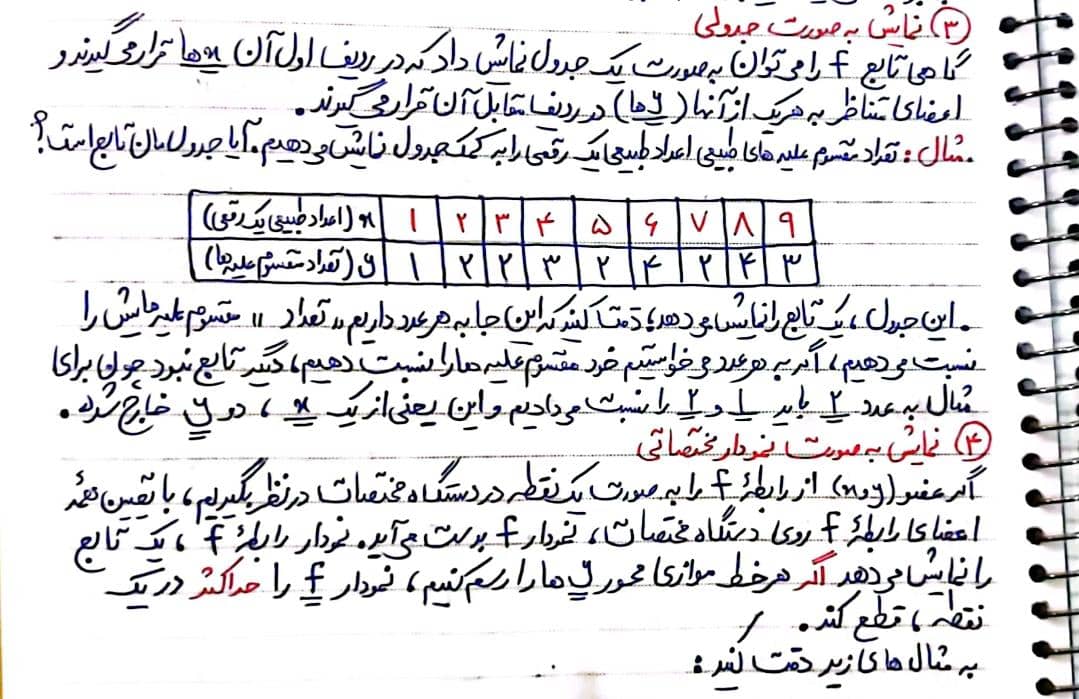 ③ نمایش به صورت جدولی
گاهی تابع f را می توان به صورت یک جدول نمایش داد که در ردیف اول آن xها قرار می گیرند و
اعضای متناظر به هر یک از آنها (yها) در ردیف مقابل آن قرار می گیرند.
مثال: تعداد مقسوم علیه های طبیعی اعداد طبیعی یک رقمی را به کمک جدول نمایش می دهیم. آیا جدول مان تابع است؟
x (اعداد طبیعی یک رقمی) ۱ ۲ ۳ ۴ ۵ ۶ ۷ ۸ ۹
y (تعداد مقسوم علیه ها) ۱ ۲ ۲ ۳ ۲ ۴ ۲ ۴ ۳
این جدول، یک تابع را نمایش می دهد؛ دقت کنید که این جا به هر عدد داریم "تعداد" مقسوم علیه هایش را
نسبت می دهیم، اگر به هر عدد می خواستیم خود مقسوم علیه ها را نسبت دهیم، دیگر تابع نبود چون برای
مثال به عدد ۲ باید ۱ و ۲ را نسبت می دادیم و این یعنی از یک x، دو y خارج شده.
④ نمایش به صورت نمودار مختصاتی
اگر عضو (x و y) از رابطهٔ f را به صورت یک نقطه در دستگاه مختصات در نظر بگیریم، با تعیین همهٔ
اعضای رابطهٔ f روی دستگاه مختصات، نمودار f بدست می آید. نمودار رابطهٔ f، یک تابع
را نمایش می دهد اگر هر خط موازی محور yها را رسم کنیم، نمودار f را حداکثر در یک
نقطه، قطع کند.
به مثال های زیر دقت کنید: